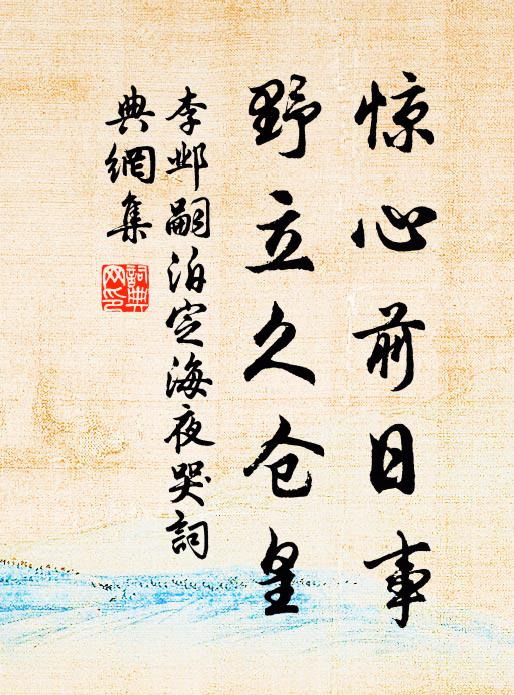 惊心前日事
野立久仓皇
李邺嗣泊定海夜哭詞
典網集
詞典
网印